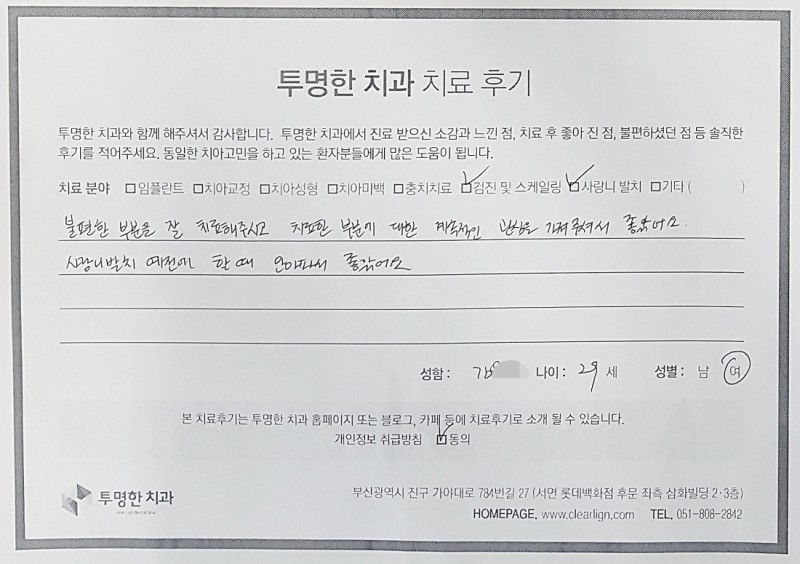 투명한 치과 치료 후기
투명한 치과와 함께 해주셔서 감사합니다. 투명한 치과에서 진료 받으신 소감과 느낀 점, 치료 후 좋아 진 점, 불편하셨던 점 등 솔직한
후기를 적어주세요. 동일한 치아고민을 하고 있는 환자분들에게 많은 도움이 됩니다.
치료 분야 □임플란트 □치아교정 □치아성형 □치아미백 □충치치료 ☑검진 및 스케일링 ☑사랑니 발치 □기타 ( )
불편한 부분을 잘 치료해주시고 치료한 부분에 대한 계속적인 관심을 가져주셔서 좋았어요.
사랑니발치 예전에 한 때 안아파서 좋았어요
성함 : 김 나이 : 29 세 성별 : 남 여
본 치료후기는 투명한 치과 홈페이지 또는 블로그, 카페 등에 치료후기로 소개 될 수 있습니다.
개인정보 취급방침 ☑동의
투명한 치과
부산광역시 진구 가야대로 784번길 27 (서면 롯데백화점 후문 좌측 삼화빌딩 2·3층)
HOMEPAGE. www.clearlign.com TEL. 051-808-2842